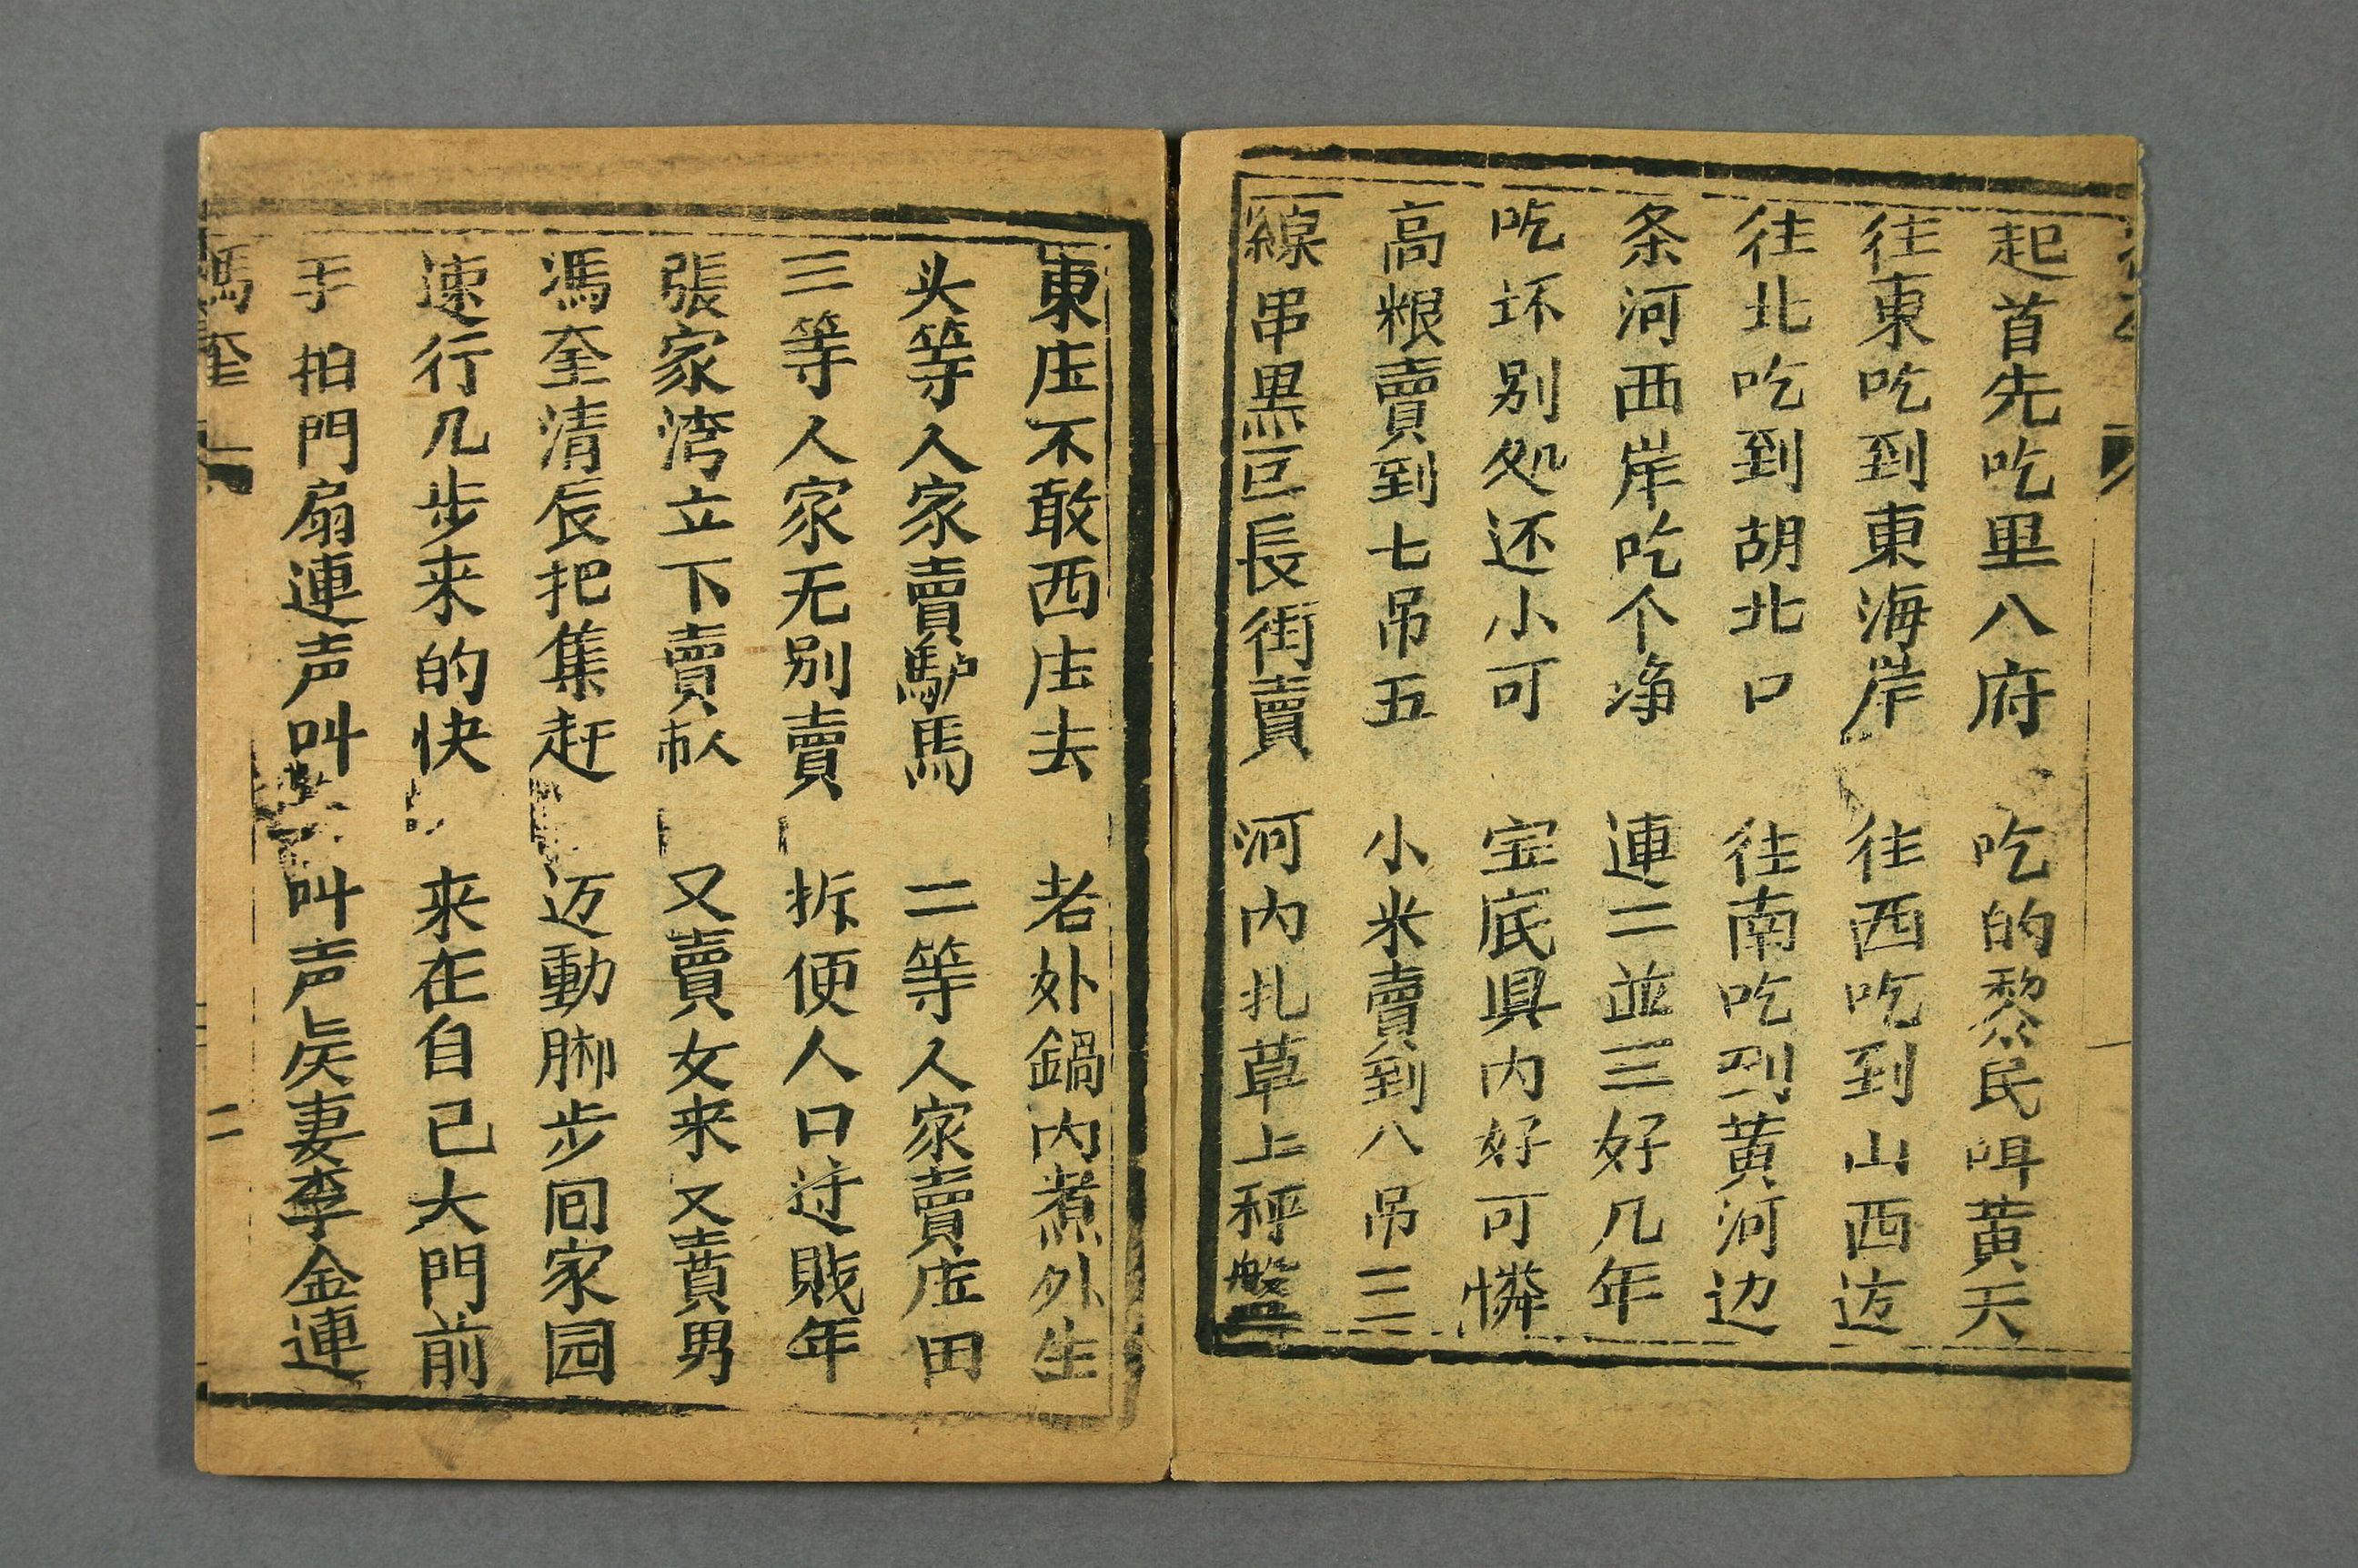 起首先吃里八府 吃的黎民咡黄天
往東吃到東海岸 往西吃到山西边
往北吃到胡北口 往南吃到黄河边
条河西岸吃个净 連二並三好几年
吃坏别処还小可 宝底具内好可憐
高粮賣到七吊五 小米賣到八吊三
線串黒豆長街賣 河内扎草上秤盤
東庄不敢西庄去 老外鍋内煮外生
头等人家賣馿馬 二等人家賣庄田
三等人家无别賣 拆便人口过賎年
張家湾立下賣人 又賣女来又賣男
馮奎清辰把集赶 迈動脚步囬家园
速行几步来的快 来在自己大門前
手拍門扇連声叫 叫声妻李金連
馮奎 二